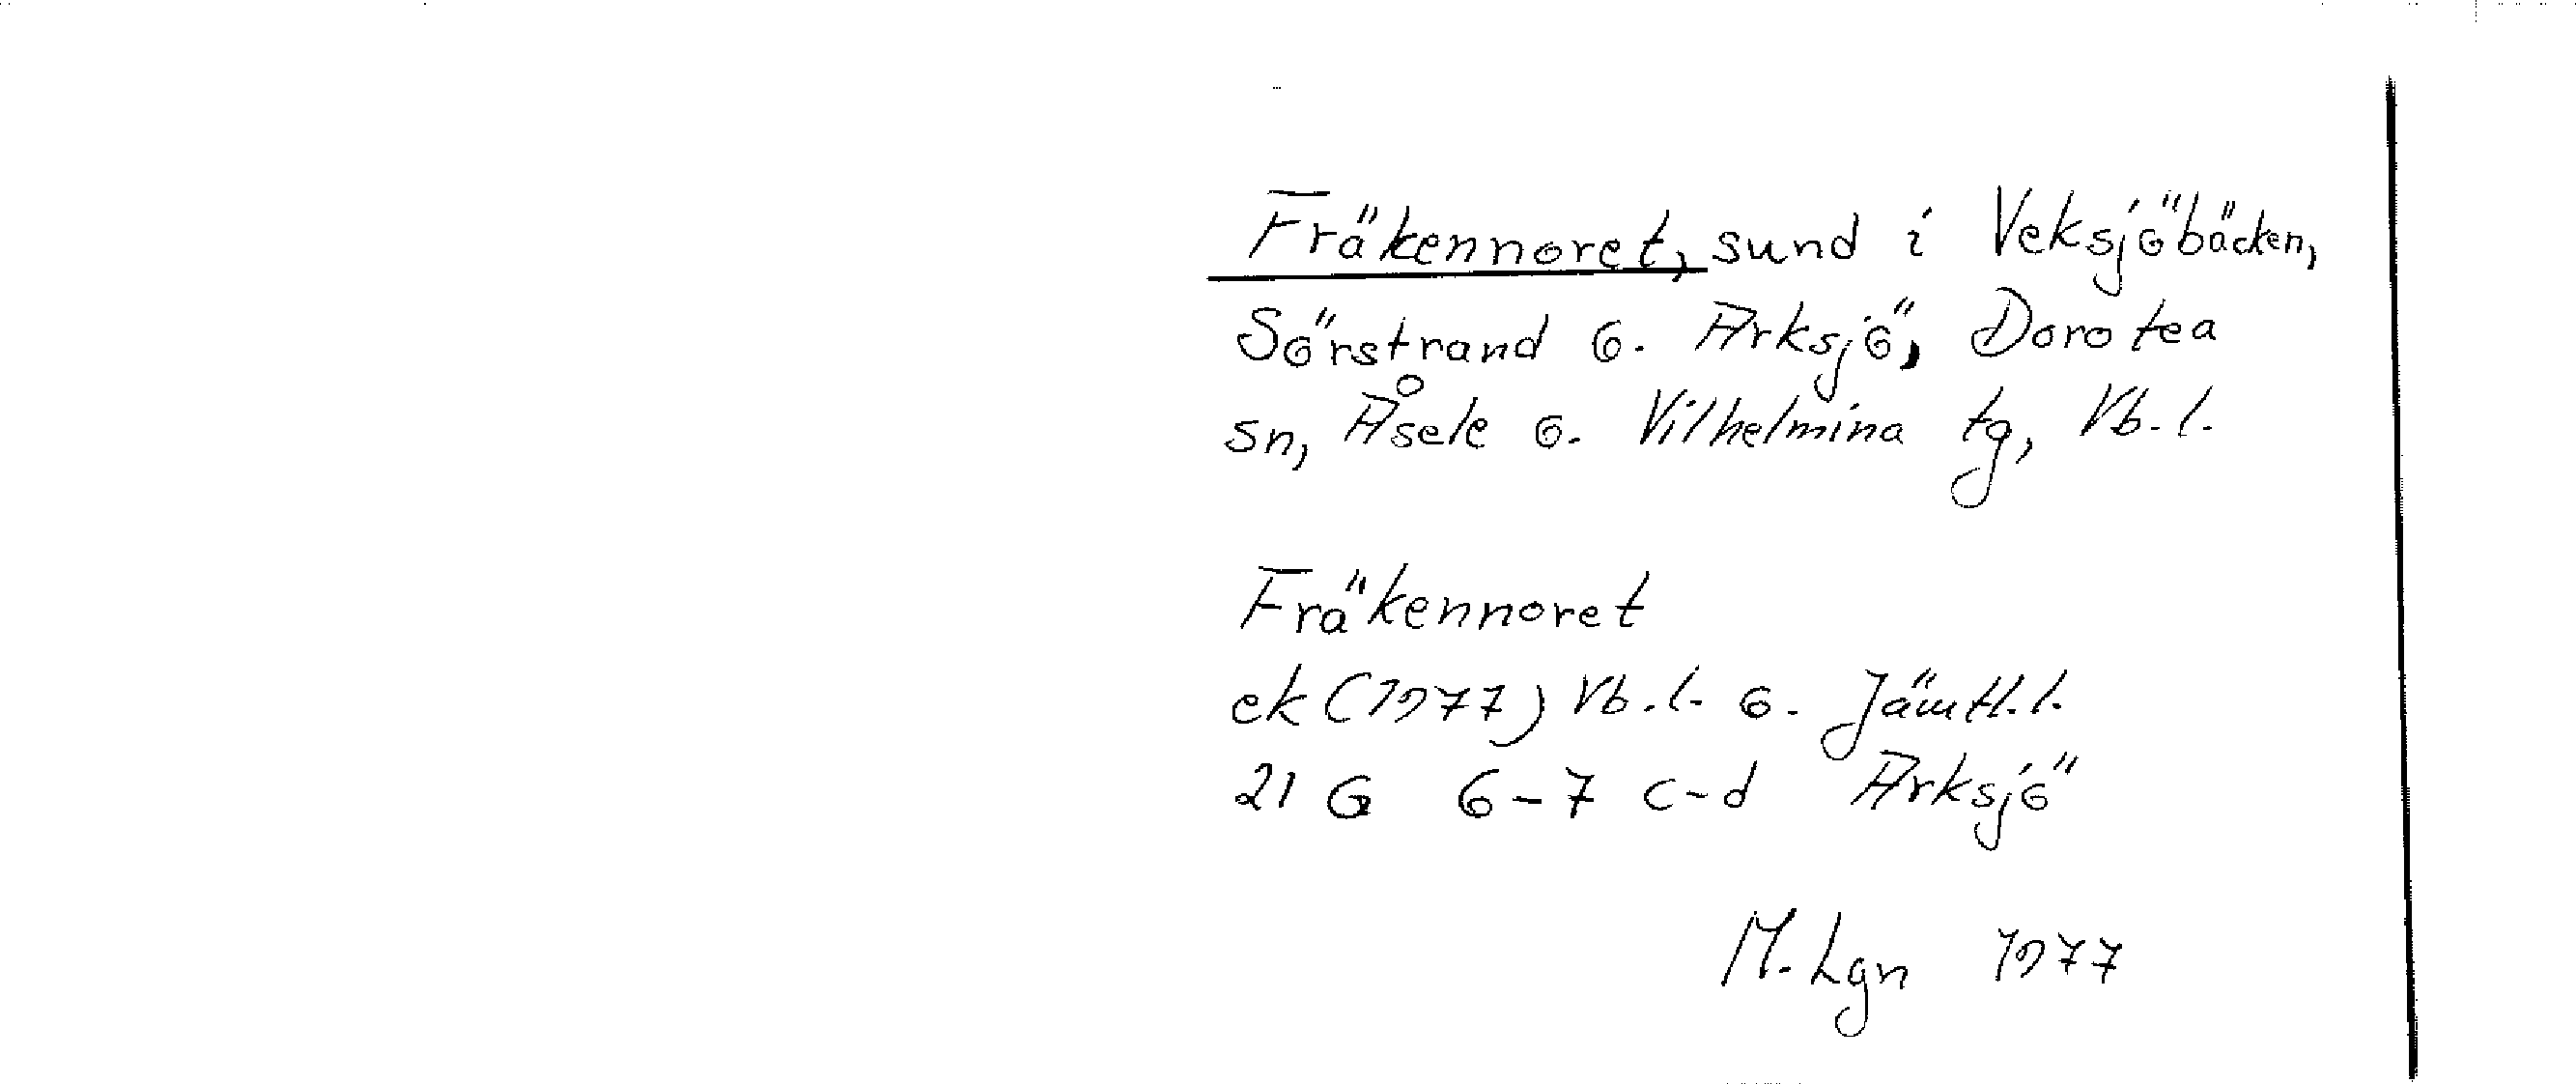 Fräkennoret, sund i Veksjöbäcken,
Sörstrand o. Arksjö, Dorotea
sn, Åsele o. Vilhelmina tg, Vb. l.
Fräkennoret
ek (1977) Vb. l. o. Jämtl. l.
21 G 6-7 c-d Arksjö
M. Lgn 1977